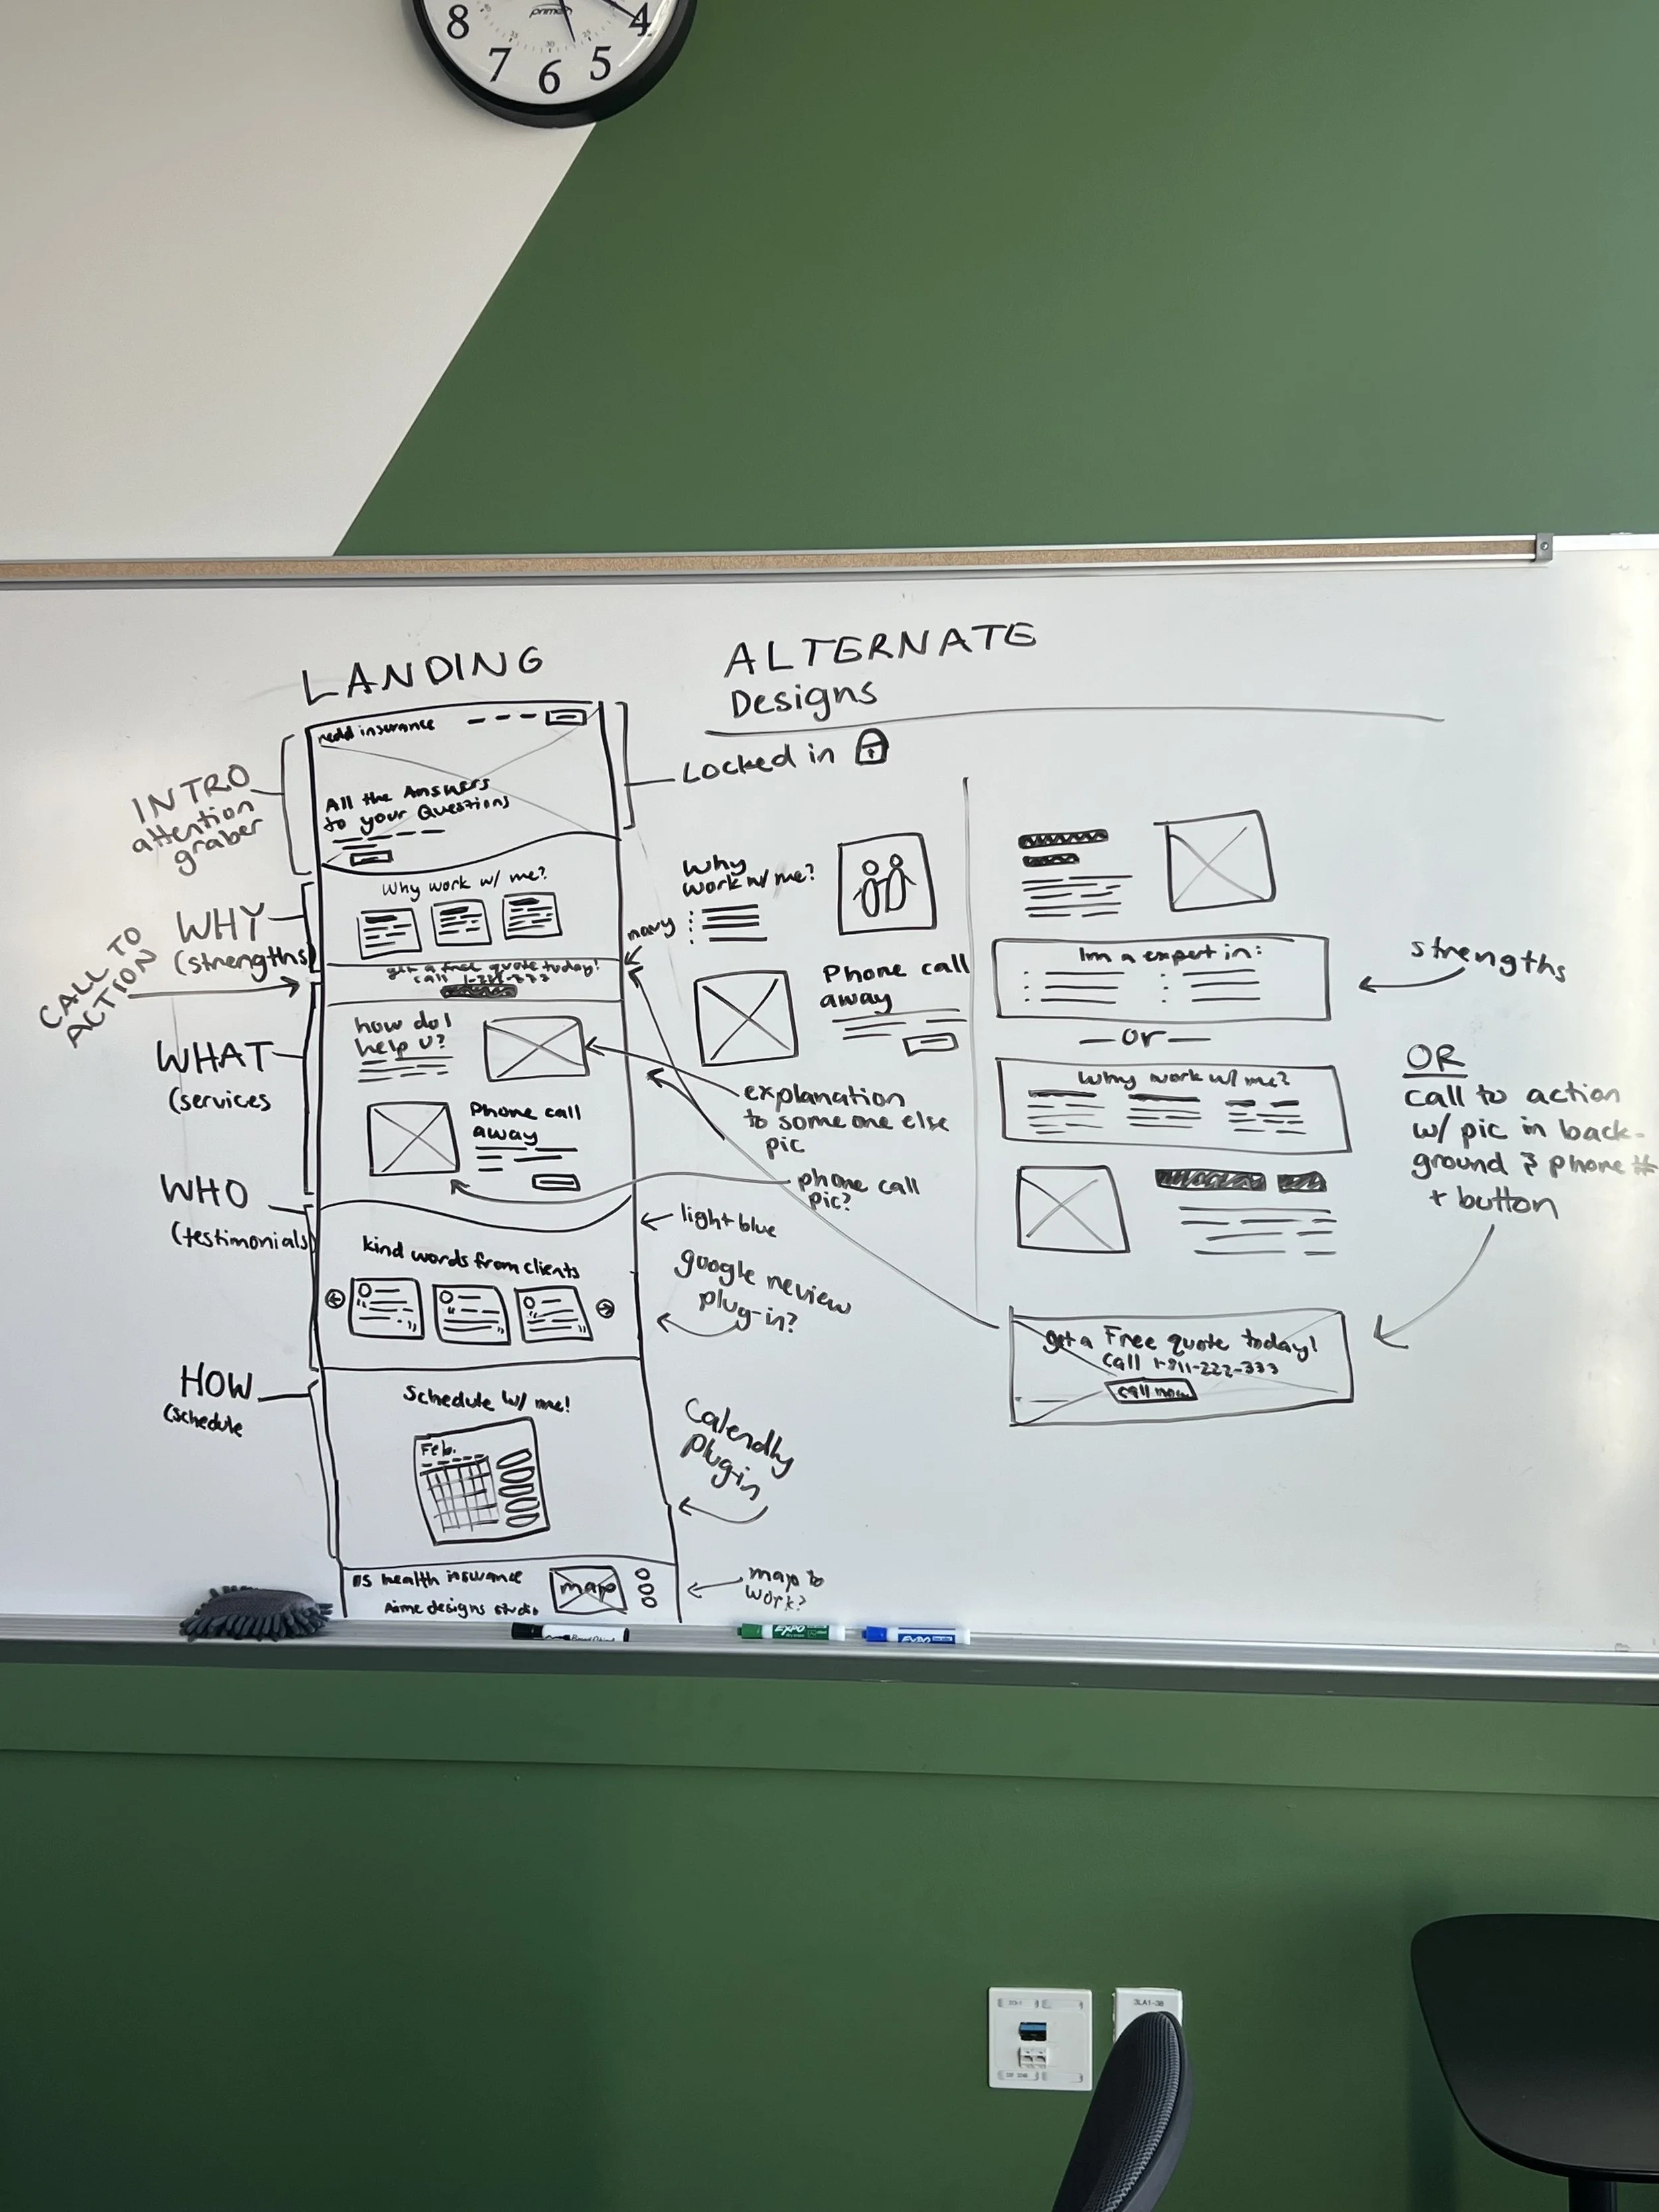 8
7
6
5
4
primex
LANDING
ALTERNATE
Designs
Locked in
insurance
All the Answers
to your Questions
INTRO
attention
graber
Why work w/ me?
WHY
(strengths)
CALL TO
ACTION
navy
get a free quote today!
call
how do I
help U?
WHAT
(services
Phone call
away
WHO
(testimonials)
kind words from clients
HOW
(schedule
Schedule w/ me!
Feb.
health insurance
designs studio
map
Why
work w/ me?
Phone call
away
explanation
to someone else
pic
phone call
pic?
light blue
google review
plug-in?
Calendly
plug-in
map to
work?
Im a expert in:
strengths
— or —
Why work w/ me?
OR
call to action
w/ pic in back-
ground & phone #
+ button
get a Free quote today!
call 1-811-222-333
call now
EXPO
EXPO
3LA1-3B